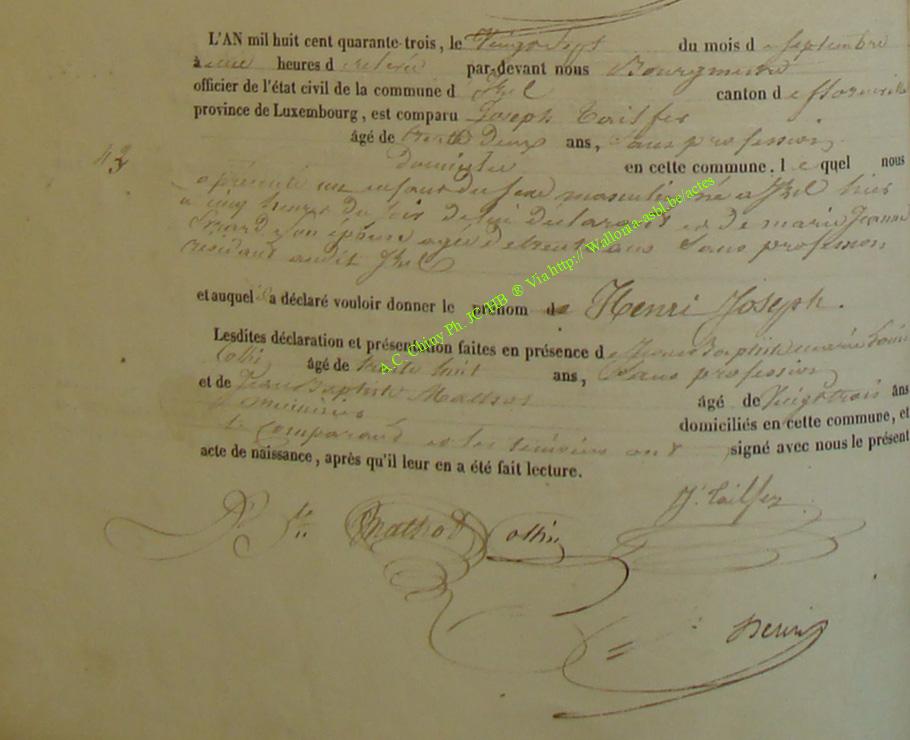 L'AN mil huit cent quarante-trois, le Vingt Sept du mois de Septembre
à une heures de relevée par-devant nous Bourgmestre
officier de l'état civil de la commune d Izel canton de florenville
province de Luxembourg, est comparu Joseph Tailfer
âgé de trente Deux ans, Sans profession
43 Domicilié en cette commune, lequel nous
a présenté un enfant du sexe masculin né a Izel hier
a cinq heures du soir de lui declarant et de marie Jeanne
son épouse agée de trente ans Sans profession
residant audit Izel
et auquel il a déclaré vouloir donner le prénom de Henri Joseph.
Lesdites déclaration et présentation faites en présence de Jean Baptiste marie
Collin âgé de trente huit ans, Sans profession
et de Jean Baptiste Mathot âgé de Vingt trois ans
domiciliés en cette commune, et
le Comparant et les témoins ont signé avec nous le présent
acte de naissance, après qu'il leur en a été fait lecture.
J. Tailfer
Mathot Collin
A.C. Chiny Ph. JC.HB ® Via http:// Wallonia-asbl.be/actes